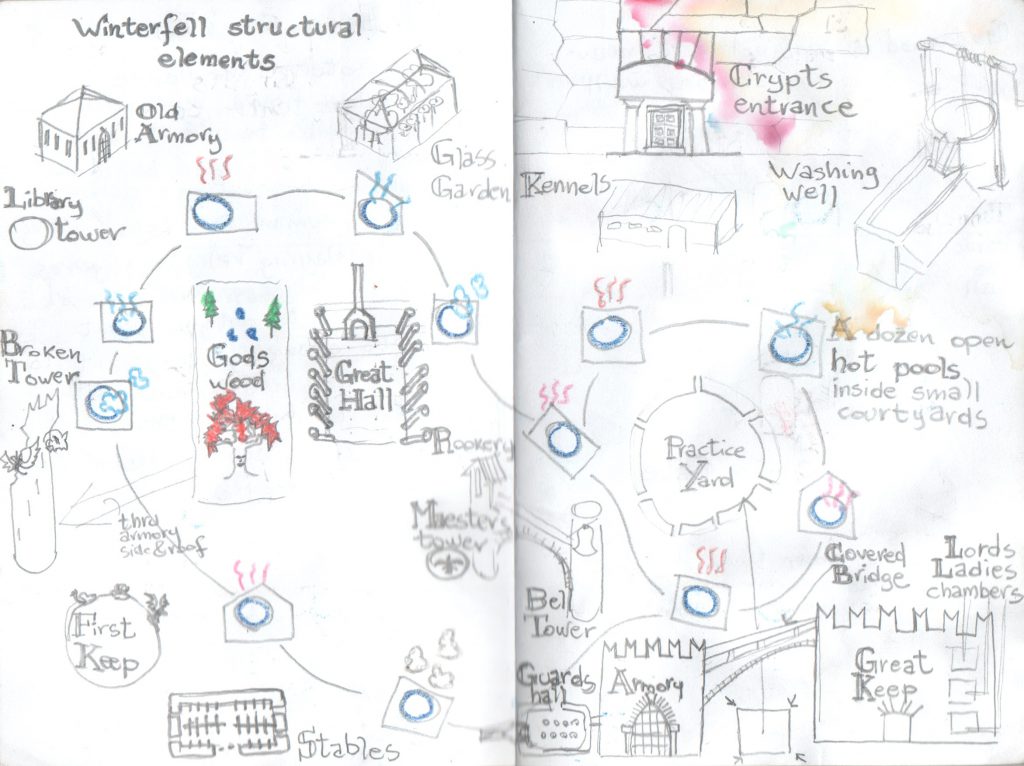 Winterfell structural
elements
Old
Armory
Glass
Garden
Library
tower
Broken
Tower
Gods
wood
Great
Hall
Rookery
Maester's
tower
thrd
armory
side & roof
First
Keep
Stables
Crypts
entrance
Kennels
Washing
well
A dozen open
hot pools
inside small
courtyards
Practice
Yard
Bell
Tower
Covered
Bridge
Lords
Ladies
chambers
Guards
hall
Armory
Great
Keep